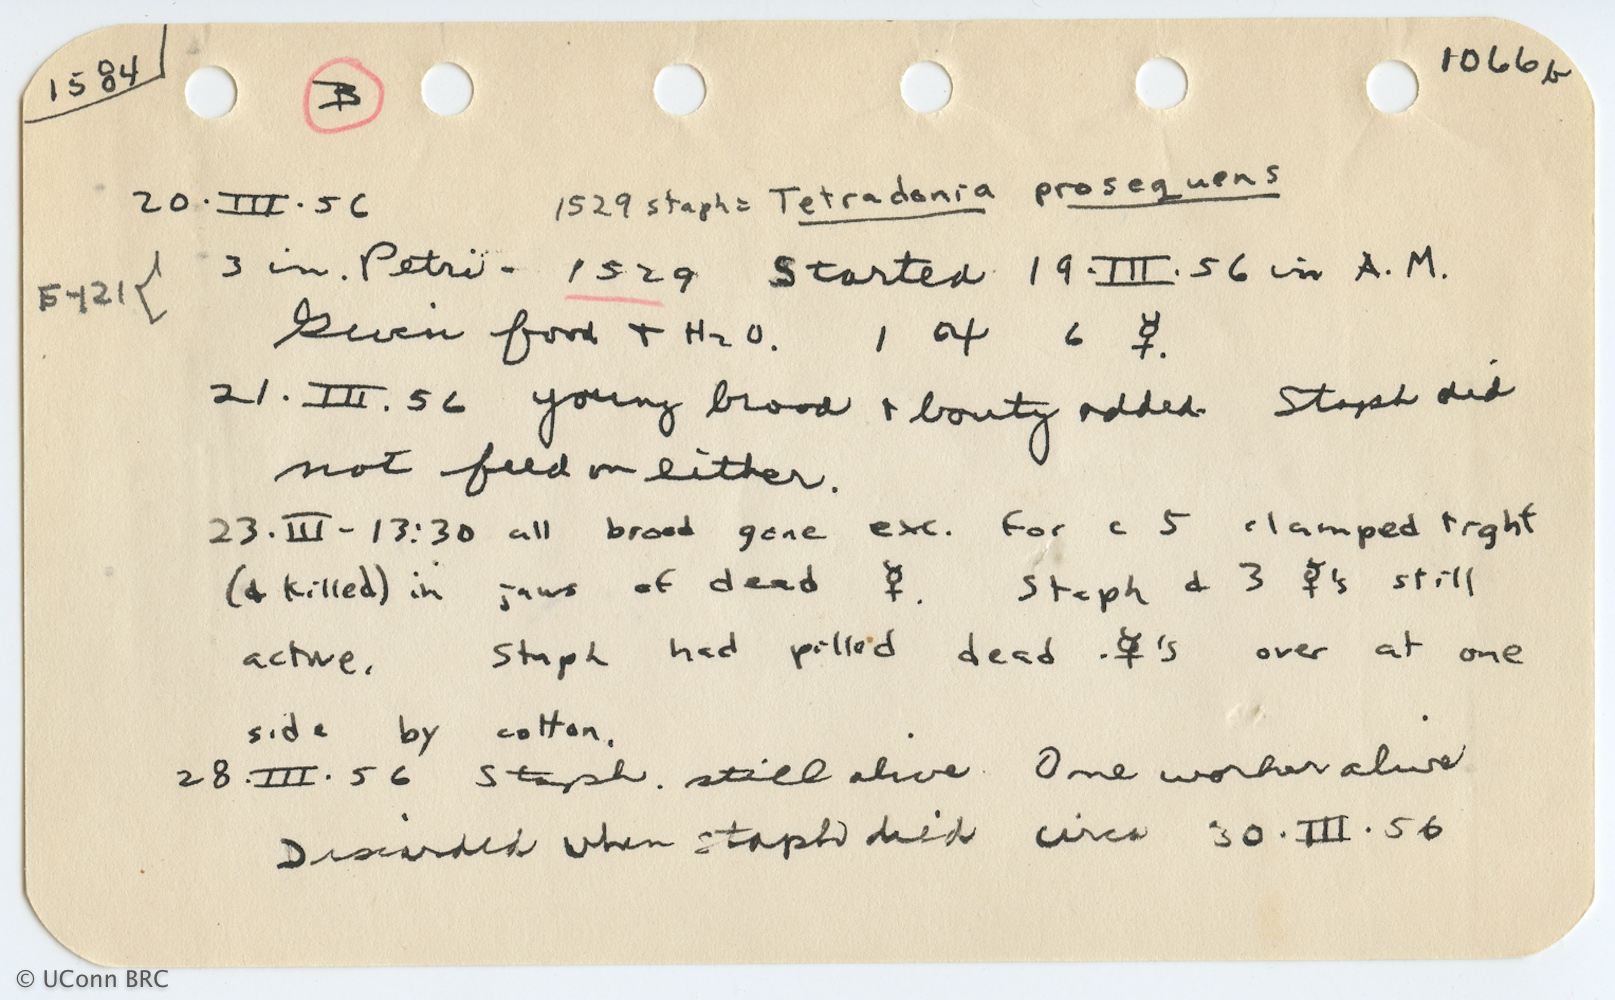 1584
B
1066b
20·III·56 1529 staph= Tetradonia prosequens
3 in. Petri- 1529 Started 19·III·56 in A.M.
E-121 {
Given food + H2O. 1 of 6 ☿.
21·III·56 young brood + booty added. Staph did
not feed on either.
23·III-13:30 all brood gone exc. for c 5 clamped tight
(& killed) in jaws of dead ☿. Staph & 3 ☿'s still
active. Staph had pilled dead ☿'s over at one
side by cotton.
28·III·56 Staph. still alive. One worker alive
Discarded when staph died circa 30·III·56
© UConn BRC